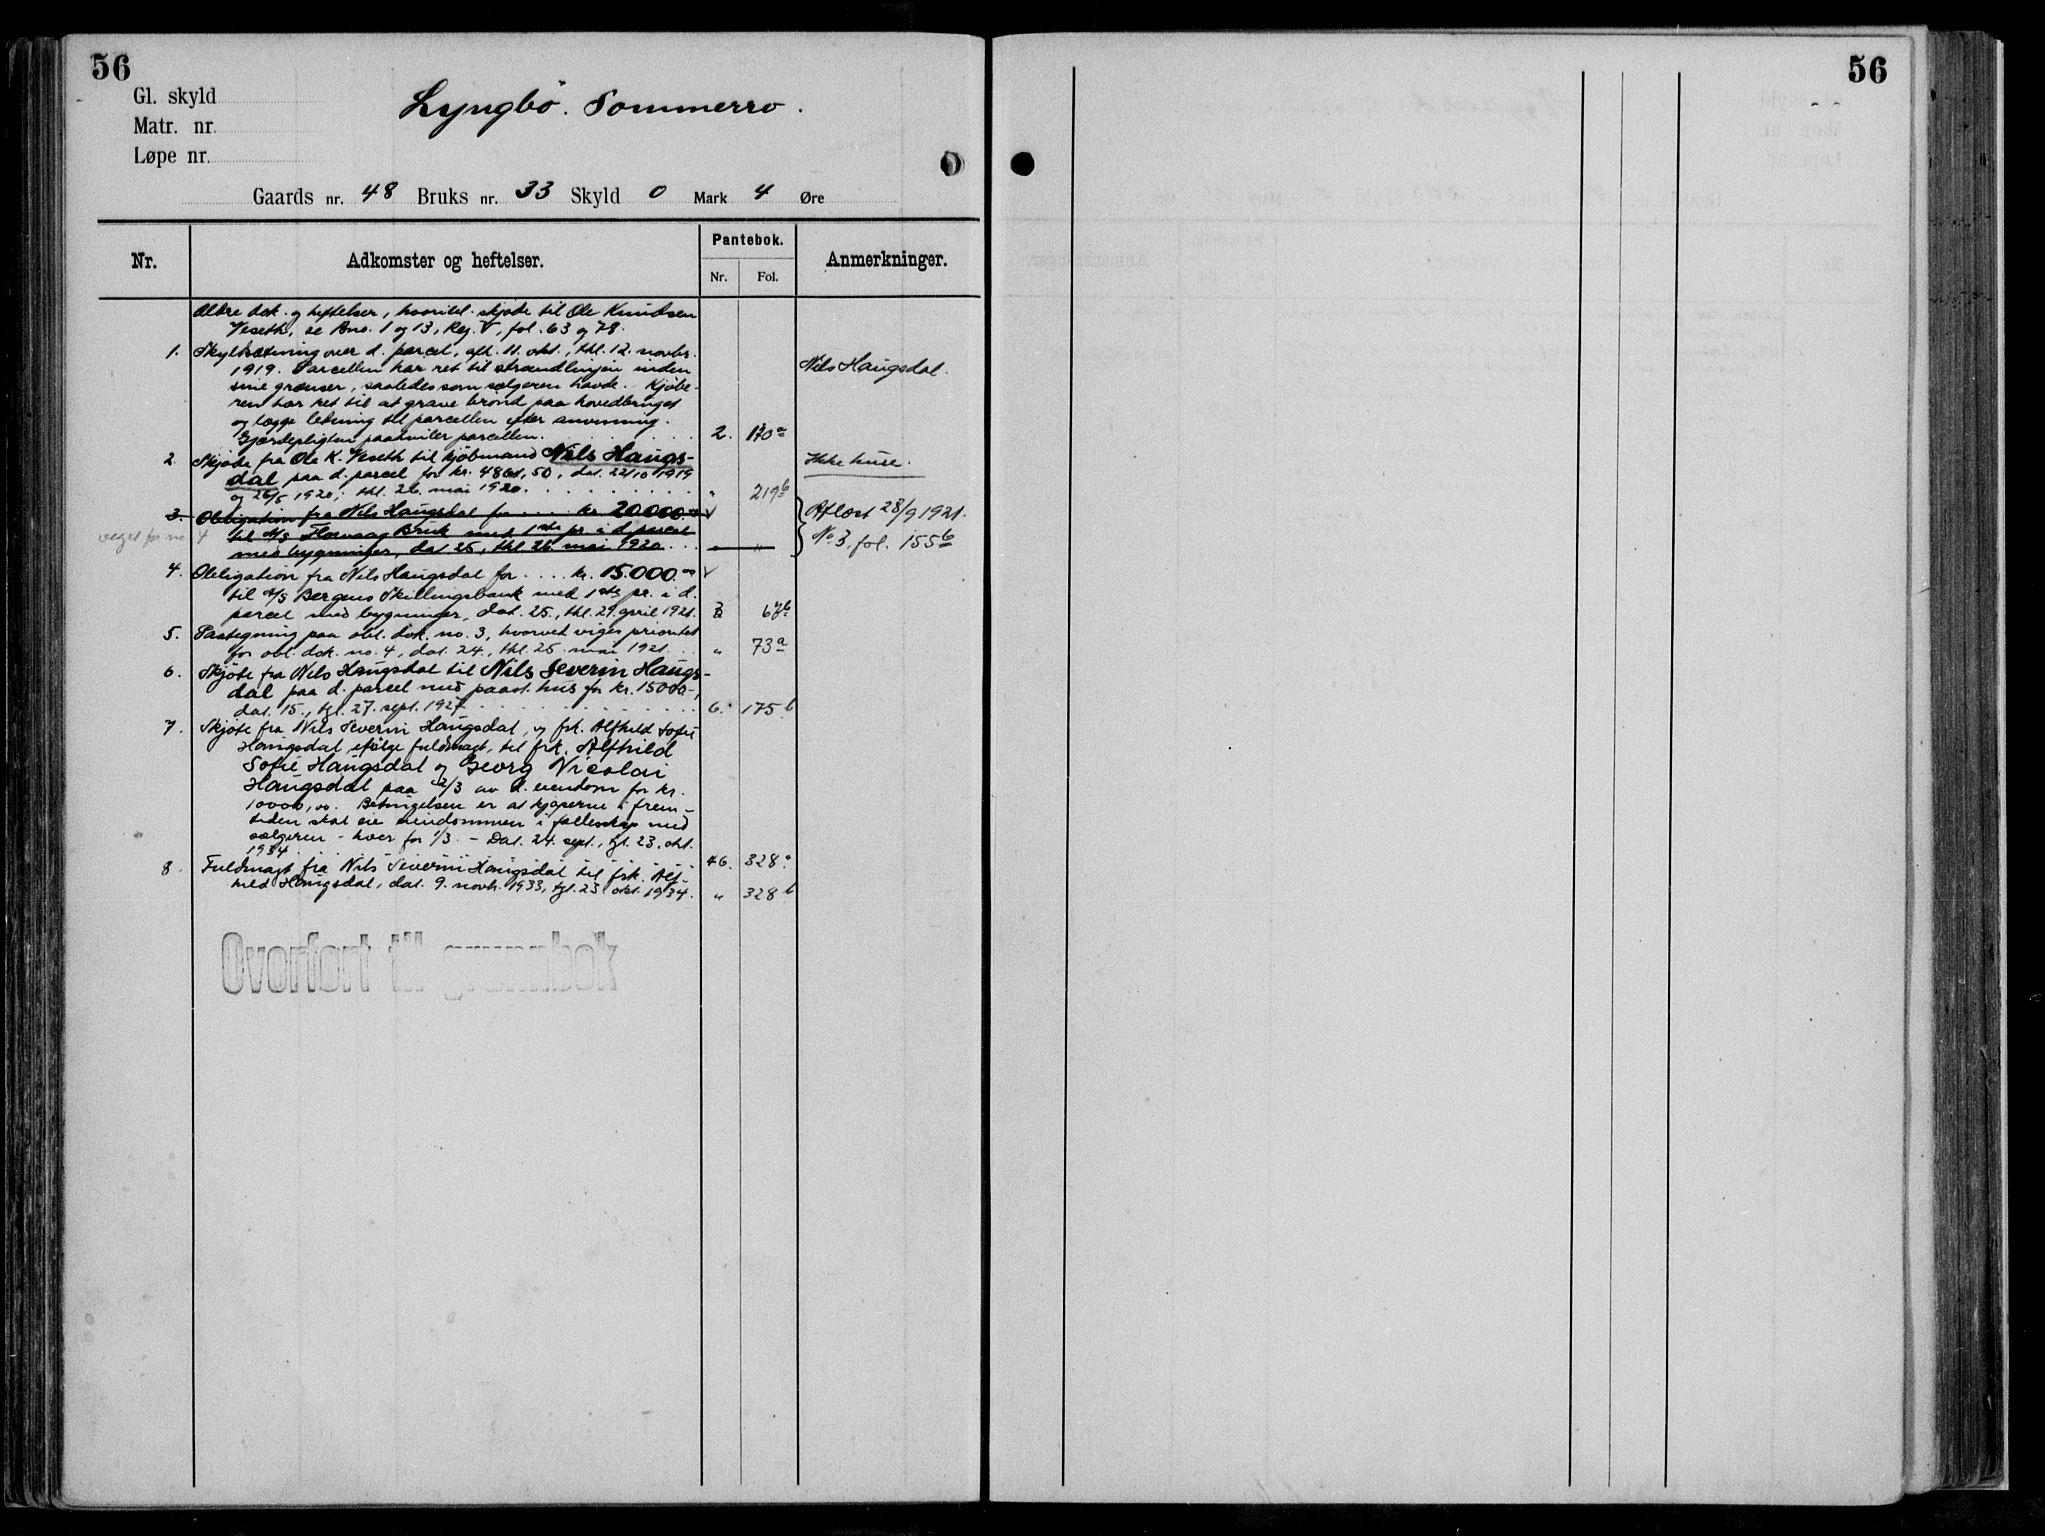 56
56
Gl. skyld
Matr. nr.
Løpe nr.
Lyngbö. Sommerro.
Gaards nr. 48 Bruks nr. 33 Skyld 0 Mark 4 Øre
Nr. Adkomster og heftelser. Pantebok. Anmerkninger.
Nr. Fol.
Ældre dok. og heftelser, hvoribl. skjøde til Ole Knudsen
Veseth, se Bno. 1 og 13, Reg. V, fol. 63 og 78.
1. Skyldsætning over d. parcel, afh. 11. okt., thl. 12. novbr.
1919. Parcellen har ret til strandlinjen inden Nils Haugsdal.
sine grænser, saaledes som sælgeren havde. Kjöbe-
ren har ret til at grave brönd paa hovedbruget
og lægge ledning til parcellen efter anvisning.
Gjærdepligten paahviler parcellen. 2. 170a
2. Skjøde fra Ole K. Veseth til kjöbmand Nils Haugs- Ikke huse.
dal paa d. parcel for kr. 4861,50, dat. 22/10 1919
og 26/5 1920, thl. 26. mai 1920. " 219b
3. Obligation fra Nils Haugsdal for kr. 20000.00 Aflæst 28/9 1921.
veget for no 4 til A/S Bruk med 1ste pr. i d. parcel No 3, fol. 155b
med bygninger, dat. 25., thl. 26. mai 1920. " "
4. Obligation fra Nils Haugsdal for kr. 15.000.00
til A/S Bergens Skillingsbank med 1ste pr. i d.
parcel med bygninger, dat. 25., thl. 29. april 1921. 3 67b
5. Paategning paa obl. dok. no. 3, hvorved viges prioritet
for obl. dok. no. 4, dat. 24., thl. 25. mai 1921. " 73a
6. Skjöte fra Nils Haugsdal til Nils Severin Haugs-
dal paa d. parcel med paast. hus for kr. 15000.-,
dat. 15., tgl. 27. sept. 1927. 6. 175b
7. Skjöte fra Nils Severin Haugsdal, og frk. Alfhild Sofie
Haugsdal, ifölge fuldmagt, til frk. Alfhild
Sofie Haugsdal og Georg Nicolai
Haugsdal paa 2/3 av d. eiendom for kr.
10000,00. Betingelsen er at kjøperne i frem-
tiden skal eie eiendommen i fællesskap med
sælgeren - hver for 1/3. - Dat. 24. sept., tgl. 23. okt.
1934. 46. 328a
8. Fuldmagt fra Nils Severin Haugsdal til frk. Alf-
hild Haugsdal, dat. 9. novbr. 1933, tgl. 23. okt. 1934. " 328b
Overført til grunnbok